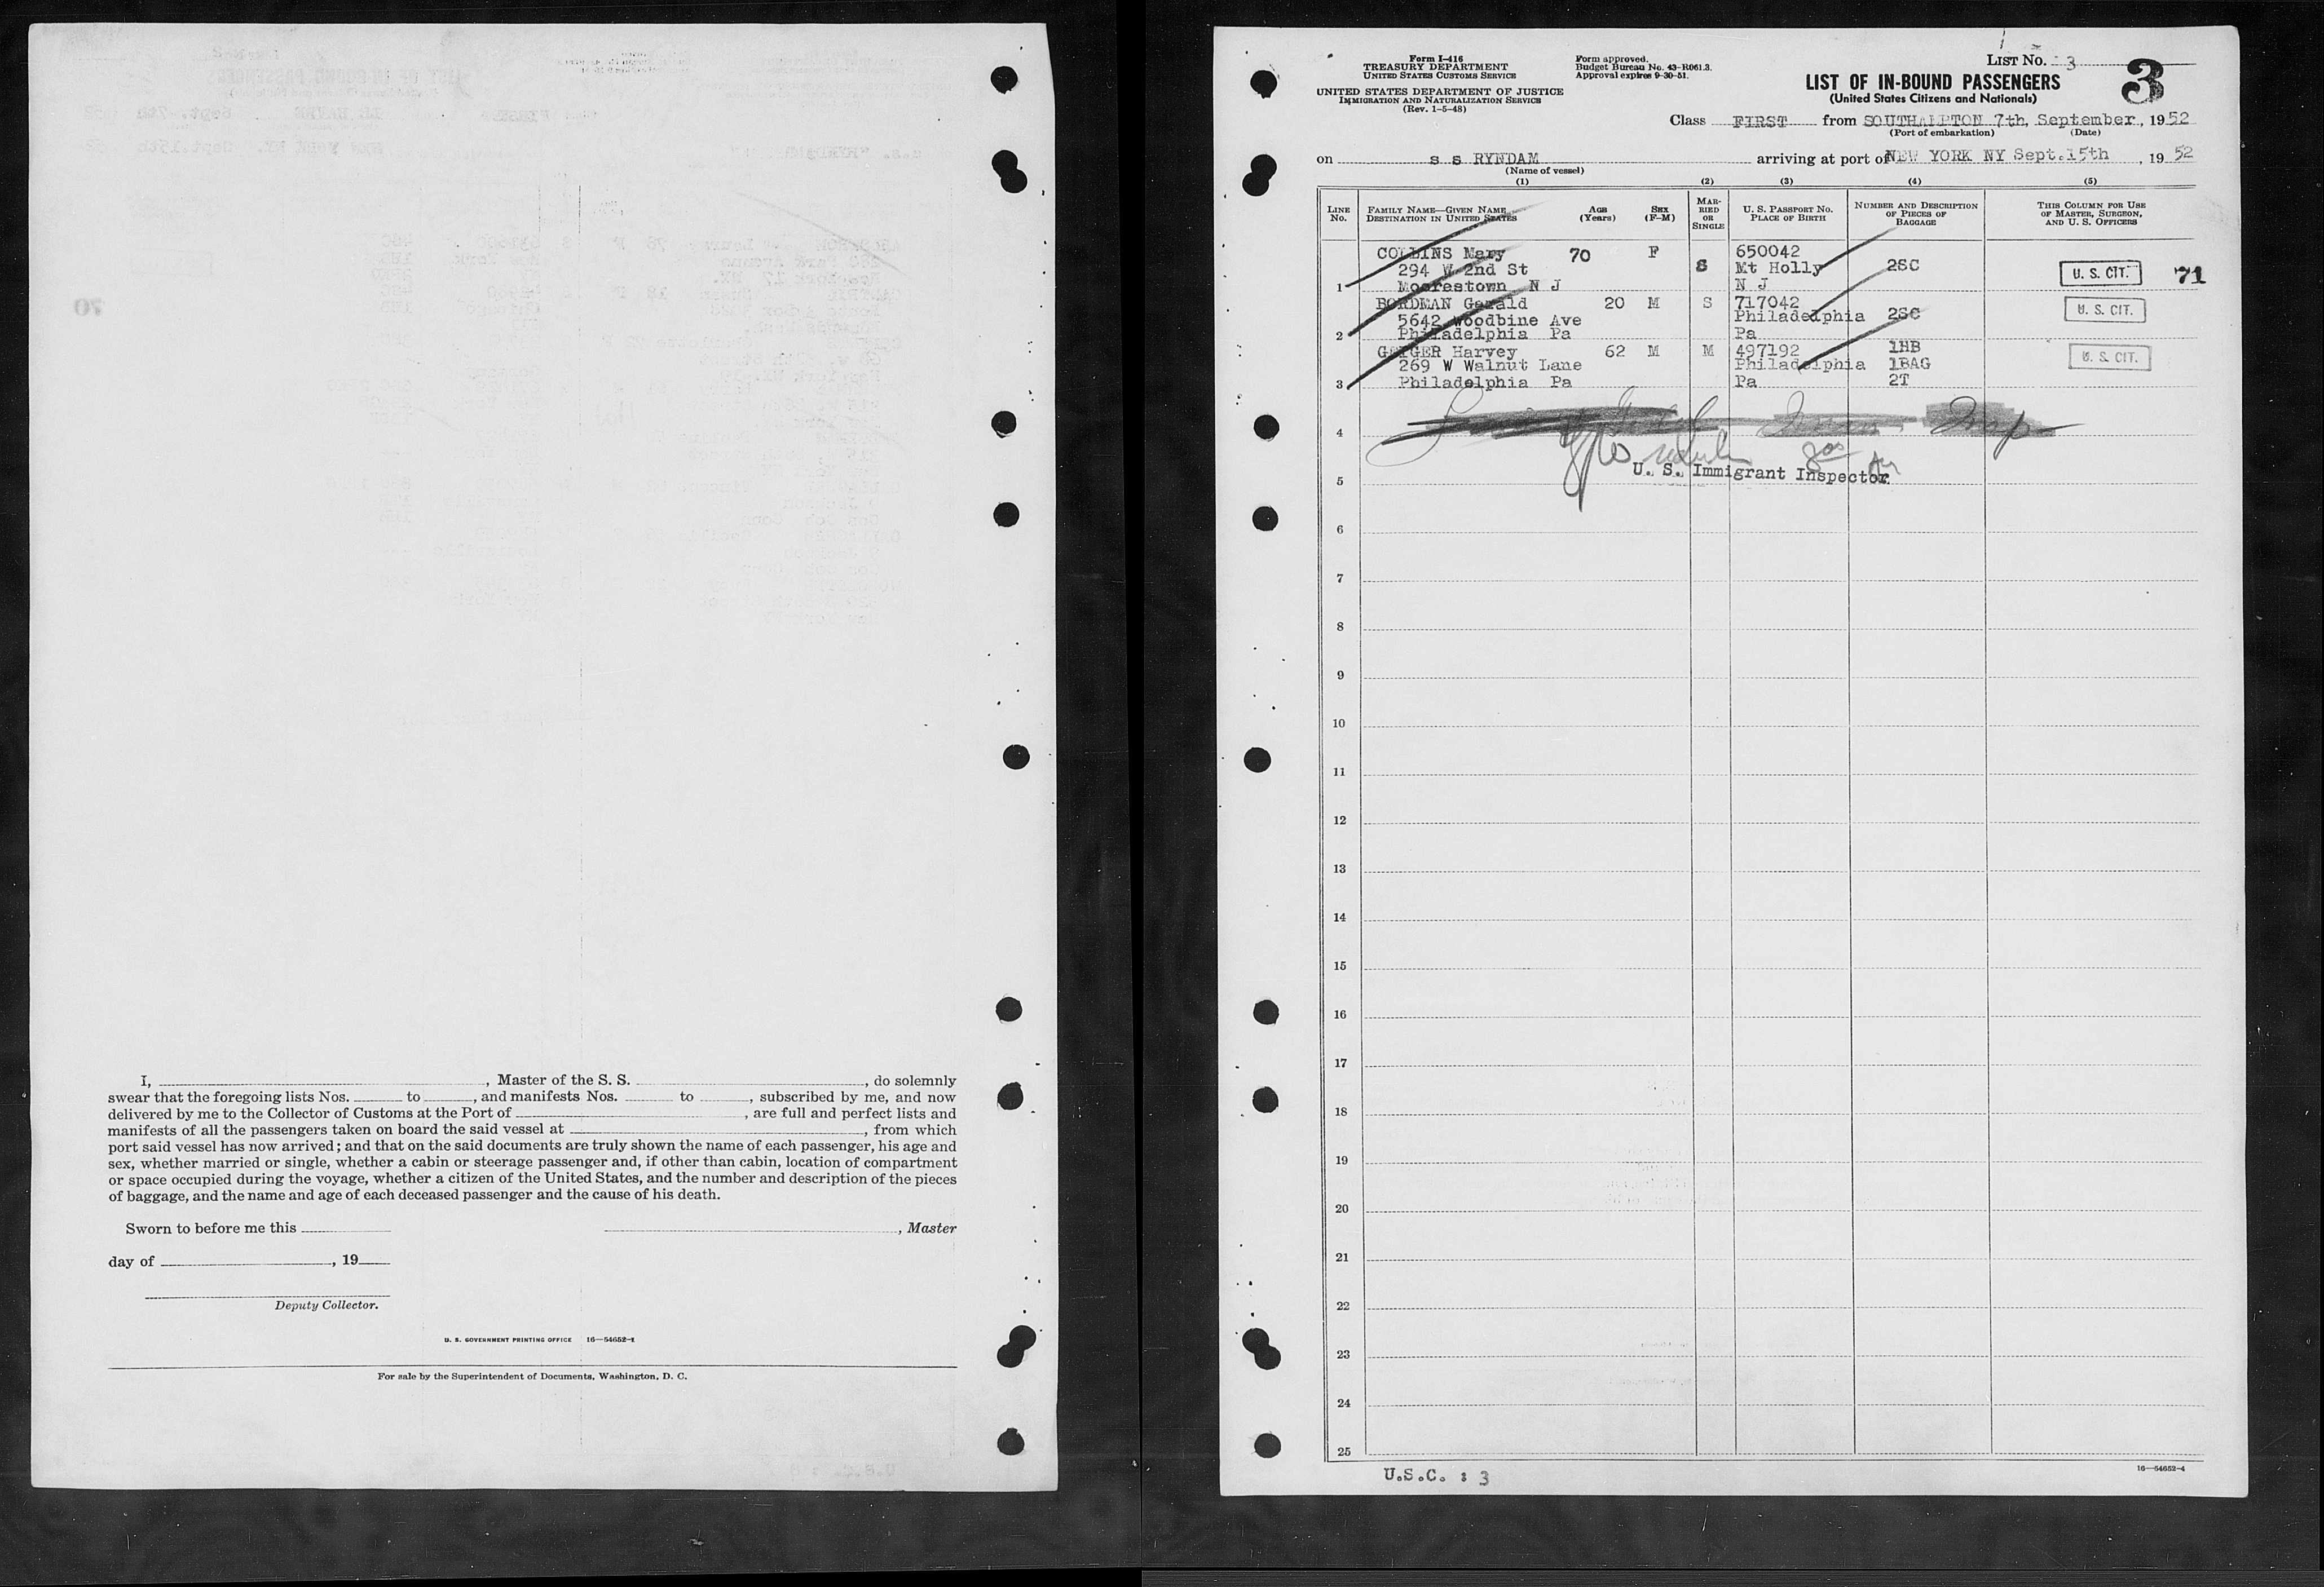 I, , Master of the S. S. , do solemnly
swear that the foregoing lists Nos. to , and manifests Nos. to , subscribed by me, and now
delivered by me to the Collector of Customs at the Port of , are full and perfect lists and
manifests of all the passengers taken on board the said vessel at , from which
port said vessel has now arrived; and that on the said documents are truly shown the name of each passenger, his age and
sex, whether married or single, whether a cabin or steerage passenger and, if other than cabin, location of compartment
or space occupied during the voyage, whether a citizen of the United States, and the number and description of the pieces
of baggage, and the name and age of each deceased passenger and the cause of his death.
Sworn to before me this , Master
day of , 19
Deputy Collector.
U. S. GOVERNMENT PRINTING OFFICE 16—54652-1
For sale by the Superintendent of Documents, Washington, D. C.
Form I-416
TREASURY DEPARTMENT
UNITED STATES CUSTOMS SERVICE
UNITED STATES DEPARTMENT OF JUSTICE
IMMIGRATION AND NATURALIZATION SERVICE
(Rev. 1-5-48)
Form approved.
Budget Bureau No. 43-R061.3.
Approval expires 9-30-51.
LIST NO. 3
3
LIST OF IN-BOUND PASSENGERS
(United States Citizens and Nationals)
Class FIRST from SOUTHAMPTON 7th, September, 1952
(Port of embarkation) (Date)
on s s RYNDAM arriving at port of NEW YORK NY Sept.15th , 19 52
(Name of vessel)
(1) (2) (3) (4) (5)
LINE NO.
FAMILY NAME—GIVEN NAME
DESTINATION IN UNITED STATES
AGE
(Years)
SEX
(F-M)
MARRIED OR SINGLE
U. S. PASSPORT NO.
PLACE OF BIRTH
NUMBER AND DESCRIPTION
OF PIECES OF
BAGGAGE
THIS COLUMN FOR USE
OF MASTER, SURGEON,
AND U. S. OFFICERS
COLLINS Mary 70 F 650042
294 W 2nd St S Mt Holly 2SC U. S. CIT. 71
1 Moorestown N J N J
BORDMAN Gerald 20 M S 717042
5642 Woodbine Ave Philadelphia 2SC U. S. CIT.
2 Philadelphia Pa Pa
GEIGER Harvey 62 M M 497192 1HB
269 W Walnut Lane Philadelphia 1BAG U. S. CIT.
3 Philadelphia Pa Pa 2T
4
U. S. Immigrant Inspector
5
6
7
8
9
10
11
12
13
14
15
16
17
18
19
20
21
22
23
24
25
U.S.C. : 3
16—54652-4